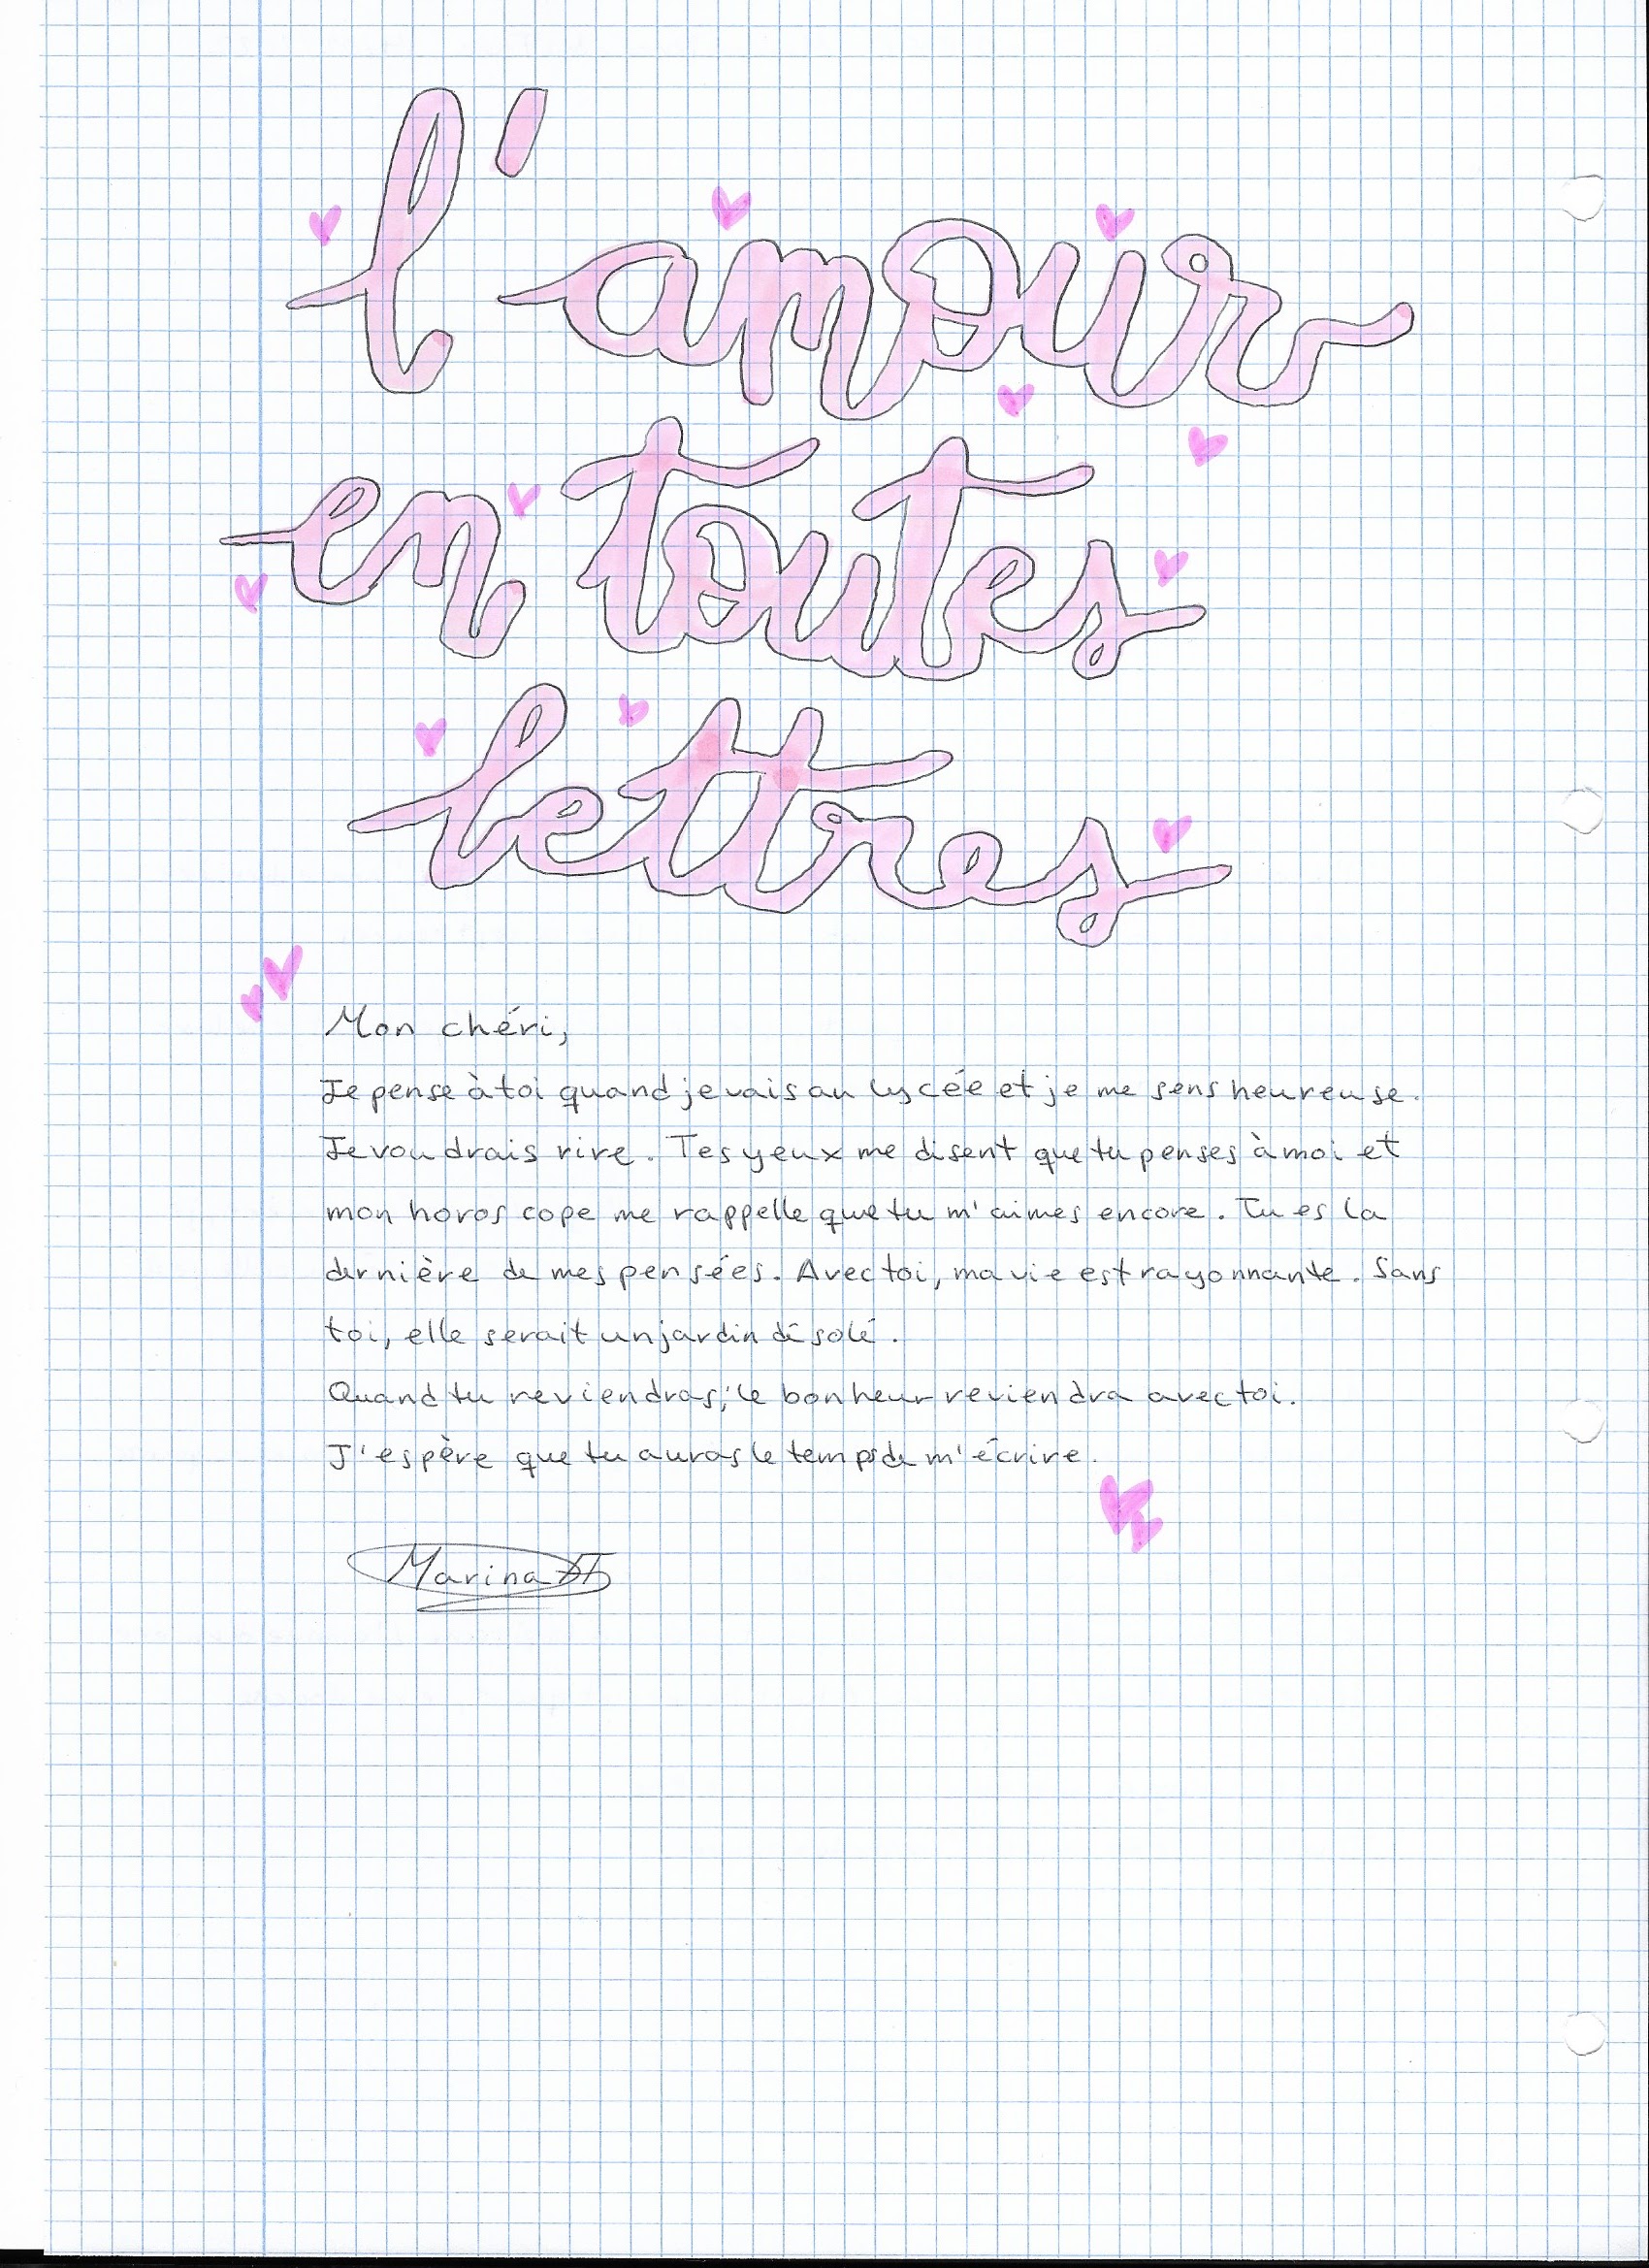 l'amour
en toutes
lettres
Mon chéri,
Je pense à toi quand je vais au lycée et je me sens heureuse.
Je voudrais rire. Tes yeux me disent que tu penses à moi et
mon horoscope me rappelle que tu m'aimes encore. Tu es la
dernière de mes pensées. Avec toi, ma vie est rayonnante. Sans
toi, elle serait un jardin désolé.
Quand tu reviendras, le bonheur reviendra avec toi.
J'espère que tu auras le temps de m'écrire.
Marina